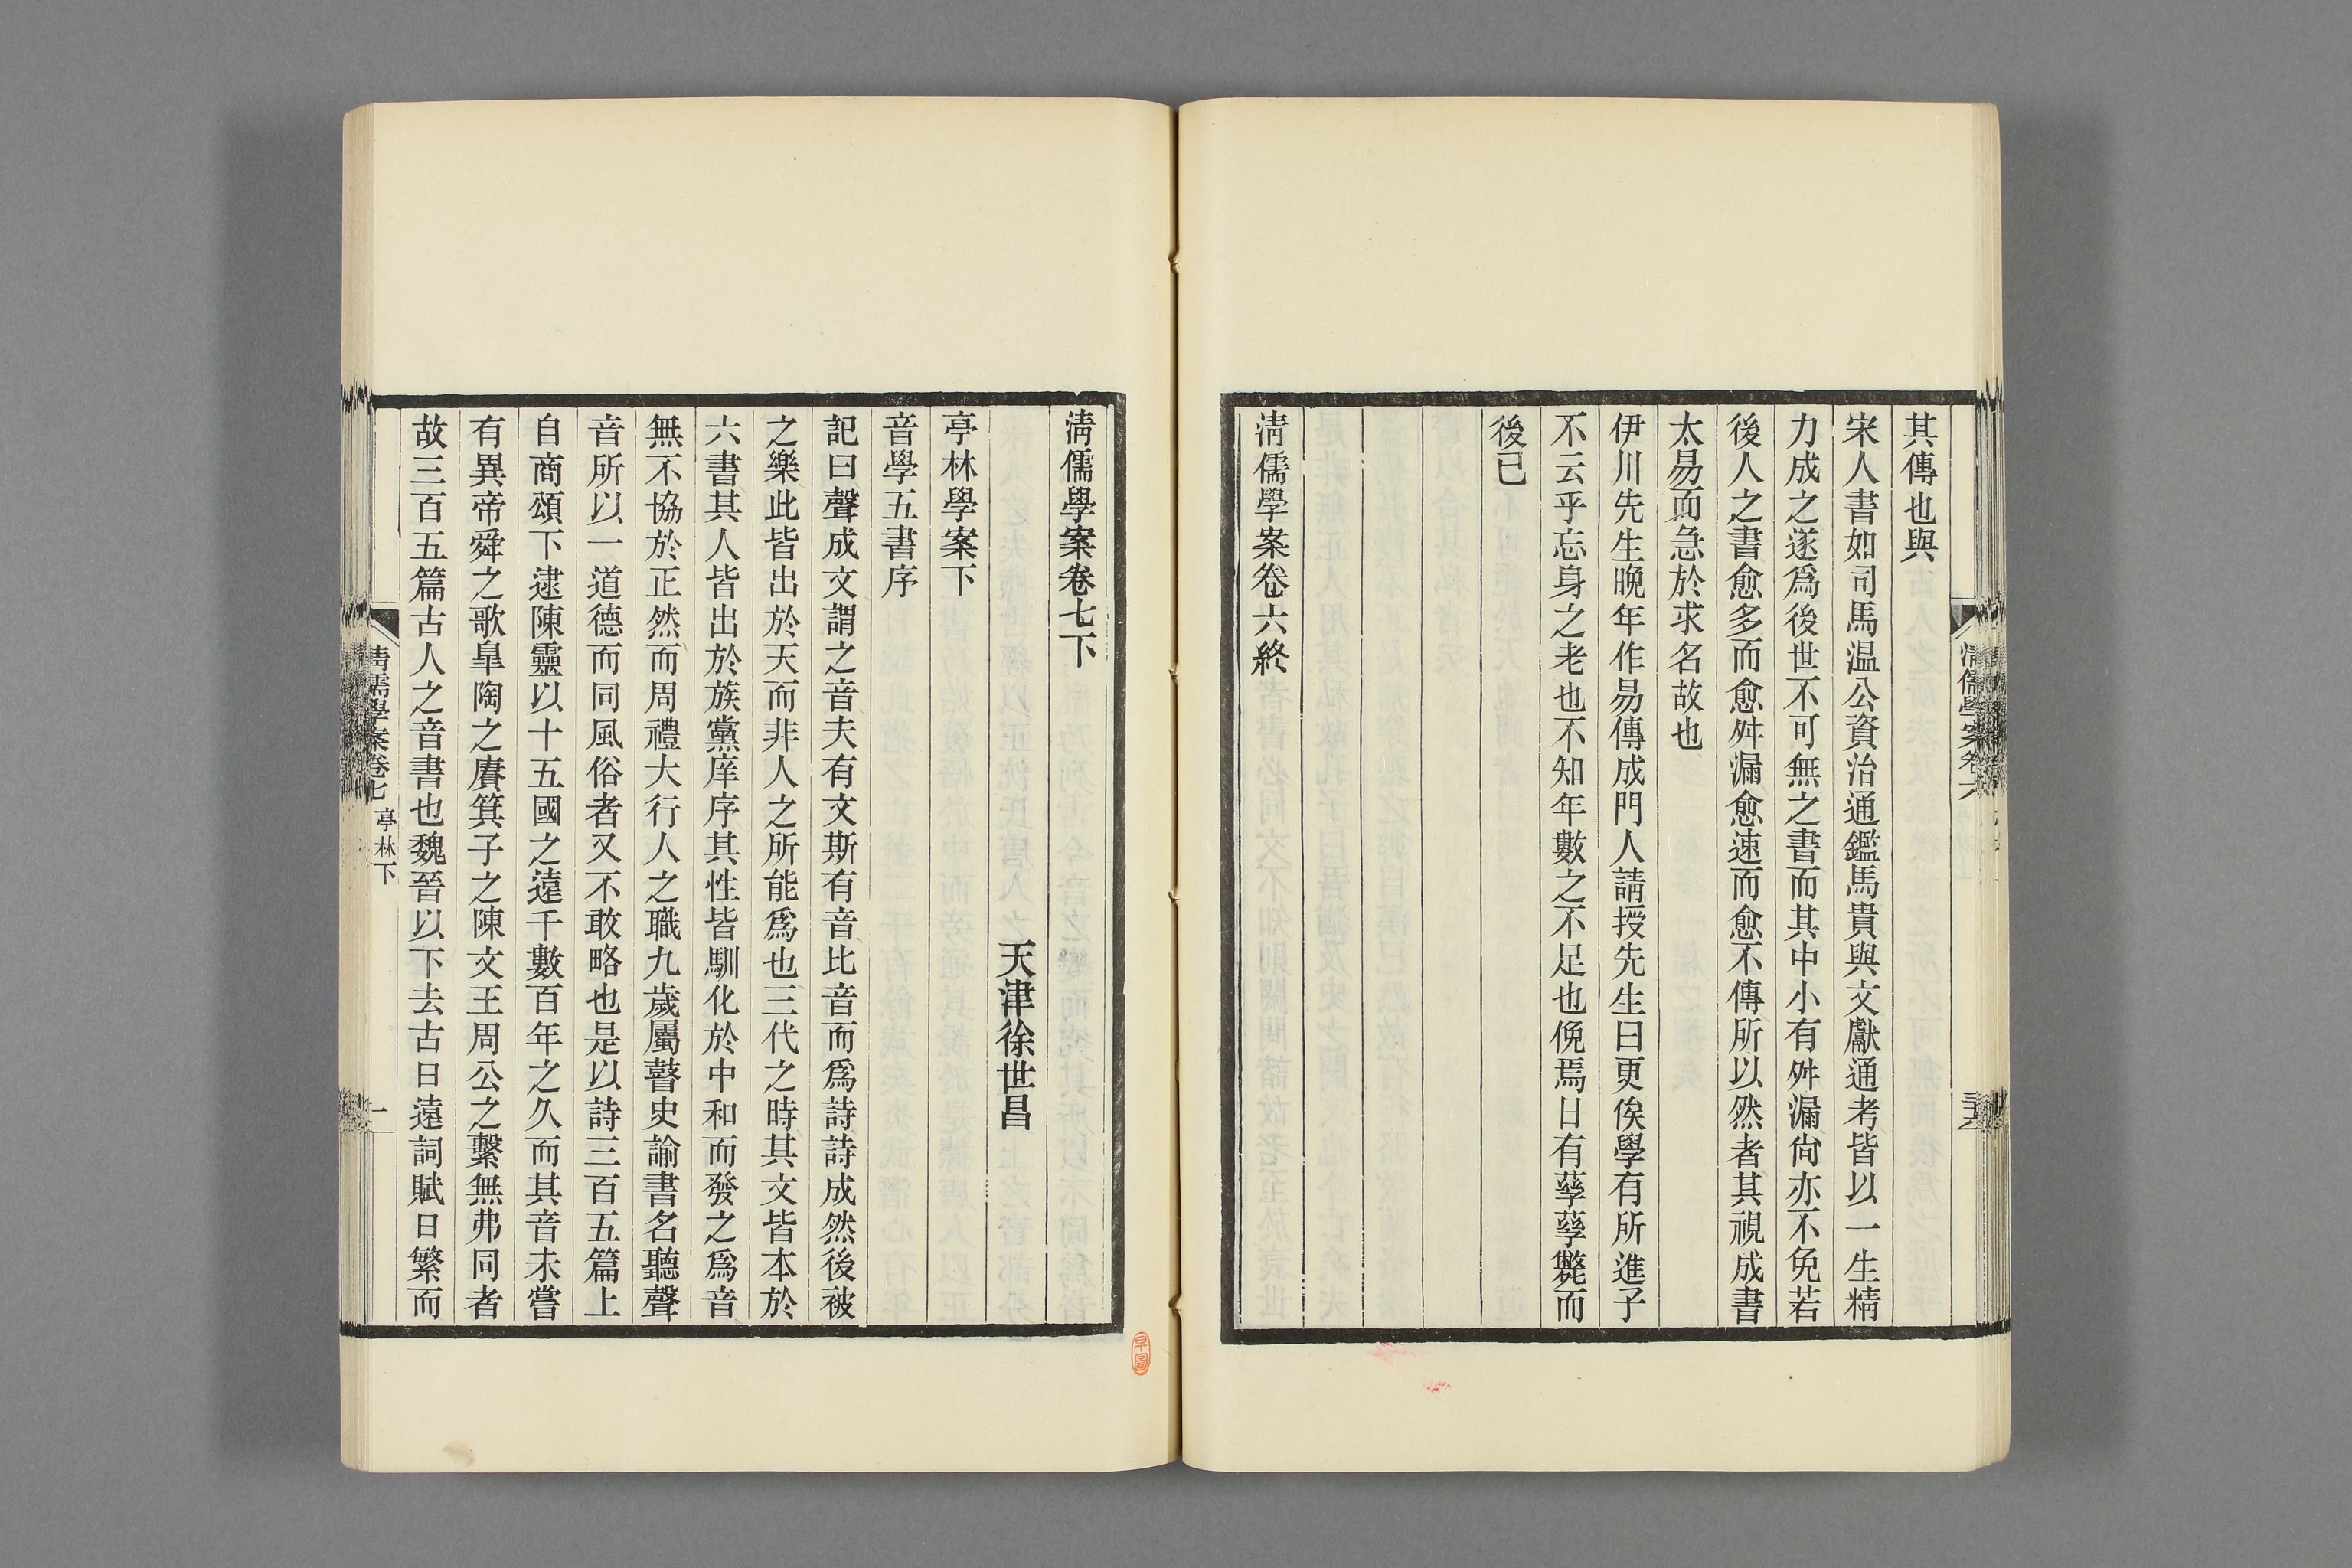 其傳也與
宋人書如司馬温公資治通鑑馬貴與文獻通考皆以一生精
力成之遂爲後世不可無之書而其中小有舛漏尙亦不免若
後人之書愈多而愈舛漏愈速而愈不傳所以然者其視成書
太易而急於求名故也
伊川先生晚年作易傳成門人請授先生曰更俟學有所進子
不云乎忘身之老也不知年數之不足也俛焉日有孳孳斃而
後已
淸儒學案卷六終
淸儒學案卷七下
天津徐世昌
亭林學案下
音學五書序
記曰聲成文謂之音夫有文斯有音比音而爲詩詩成然後被
之樂此皆出於天而非人之所能爲也三代之時其文皆本於
六書其人皆出於族黨庠序其性皆馴化於中和而發之爲音
無不協於正然而周禮大行人之職九歲屬瞽史諭書名聽聲
音所以一道德而同風俗者又不敢略也是以詩三百五篇上
自商頌下逮陳靈以十五國之遠千數百年之久而其音未嘗
有異帝舜之歌皐陶之賡箕子之陳文王周公之繫無弗同者
故三百五篇古人之音書也魏晉以下去古日遠詞賦日繁而
淸儒學案卷七
亭林下
一